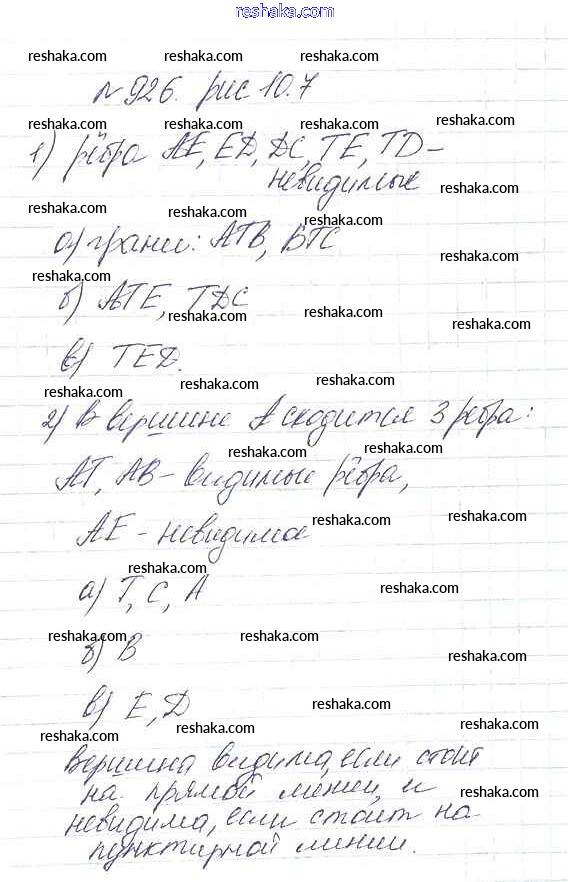 reshaka.com
reshaka.com reshaka.com reshaka.com
№926. рис 10.7
reshaka.com
reshaka.com reshaka.com reshaka.com
1) рёбра AE, ED, DC, TE, TD –
невидимые
reshaka.com
reshaka.com reshaka.com reshaka.com
а) грани: ATB, BTC
reshaka.com
reshaka.com
б) ATE, TDC
reshaka.com reshaka.com reshaka.com
в) TED.
reshaka.com reshaka.com reshaka.com
2) В вершине A сходится 3 ребра:
reshaka.com reshaka.com
AT, AB – видимые рёбра,
reshaka.com reshaka.com
AE – невидимое
reshaka.com reshaka.com reshaka.com
а) T, C, A
reshaka.com reshaka.com
б) B
reshaka.com
в) E, D
reshaka.com
reshaka.com reshaka.com
Вершина видима, если стоит
на прямой линии, и
reshaka.com
невидима, если стоит на
пунктирной линии.
reshaka.com